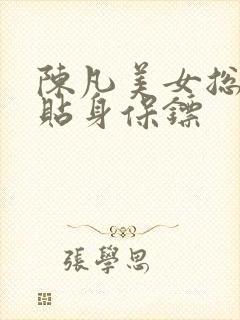 陳凡美女总
貼身保鏢
張學思